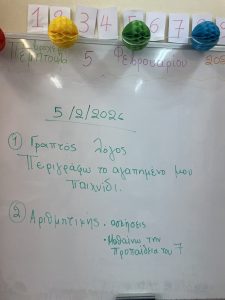 1 2 3 4 5 6 7 8 9
Πέμπτη 5 Φεβρουαρίου 202
5/2/2026
① Γραπτός λόγος
Περιγράφω το αγαπημένο μου
παιχνίδι.
② Αριθμητικής. ασκήσεις
• Μαθαίνω την
προπαίδεια του 7